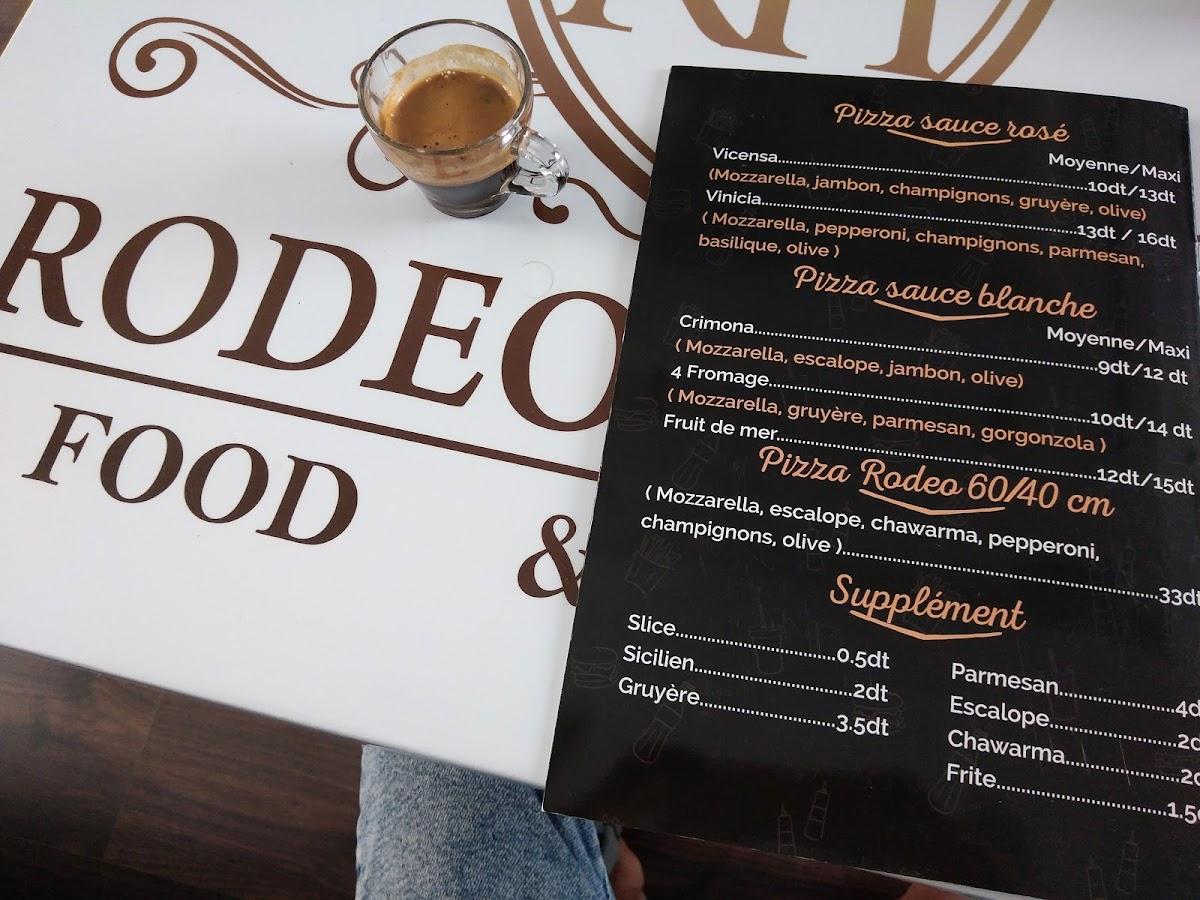 RODEO
FOOD &
Pizza sauce rosé
Moyenne/Maxi
Vicensa..........10dt/13dt
(Mozzarella, jambon, champignons, gruyère, olive)
Vinicia..........13dt / 16dt
( Mozzarella, pepperoni, champignons, parmesan,
basilique, olive )
Pizza sauce blanche
Moyenne/Maxi
Crimona..........9dt/12 dt
( Mozzarella, escalope, jambon, olive)
4 Fromage..........10dt/14 dt
( Mozzarella, gruyère, parmesan, gorgonzola )
Fruit de mer..........12dt/15dt
Pizza Rodeo 60/40 cm
( Mozzarella, escalope, chawarma, pepperoni,
champignons, olive )..........33dt
Supplément
Slice..........0.5dt
Sicilien..........2dt
Gruyère..........3.5dt
Parmesan..........4d
Escalope..........2d
Chawarma..........2d
Frite..........1.5